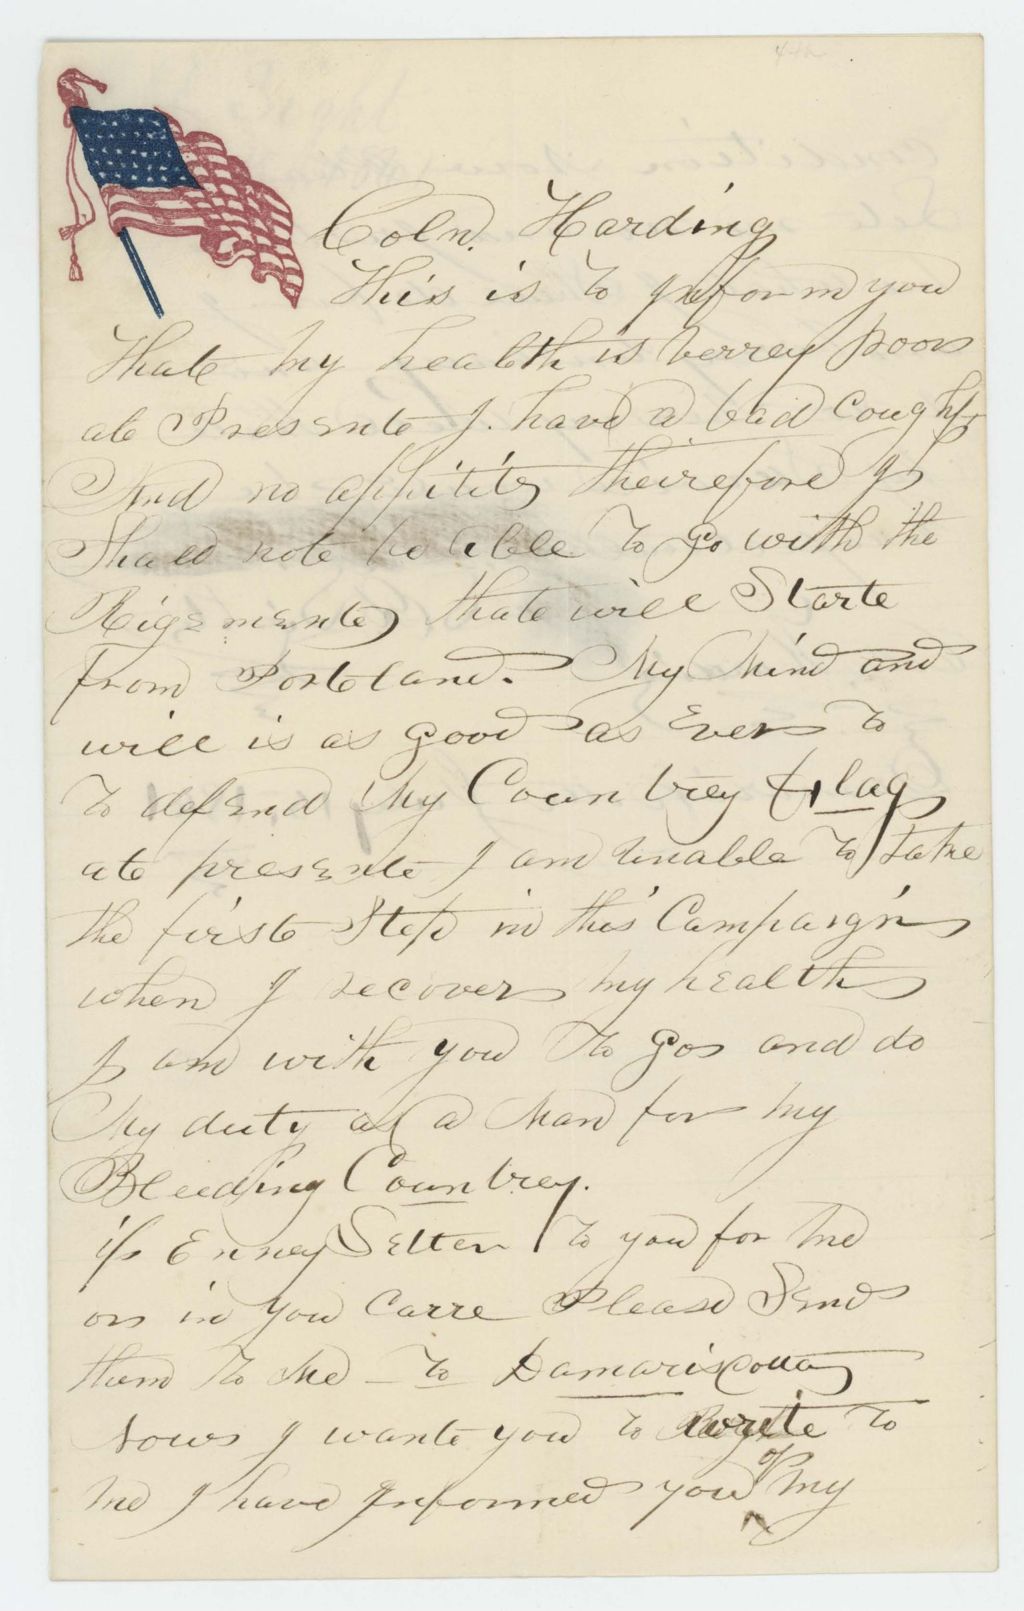 Coln. Harding
This is to Inform you
that My health is verrey poor
at Presente I. have a bad Cought
And no appitite theirefore I
Shall note be able to go with the
Rigemente that will Starte
from Portland. My Mind and
will is as good as Ever to
to defend My Countrey & Flag
at presente I am Unable to take
the first Step in this Campaign
when I recover my health
I am with you to go and do
My duty as a Man for my
Bleeding Countrey.
if Enney Letter to you for me
or in you Carre Please Send
them to Me to Damariscotta
Now I wante you to write to
me I have Informed you of my